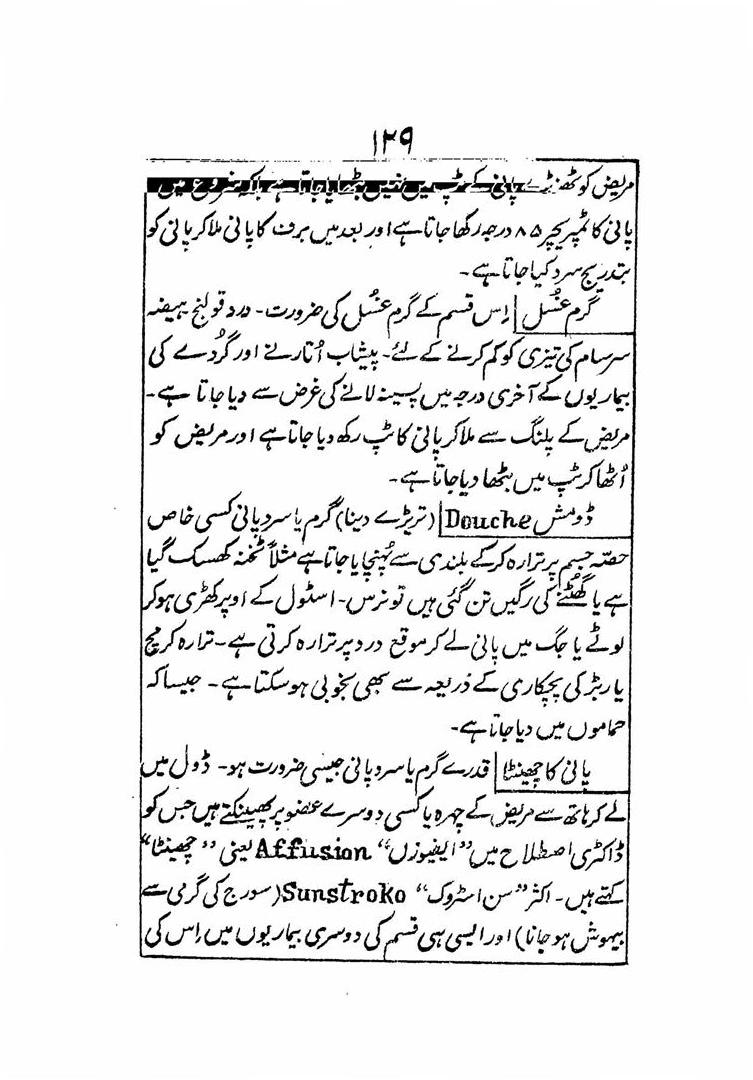 ۱۲۹
مریض کو ٹھنڈے پانی کے ٹپ میں نہیں بٹھایا جاتا ہے بلکہ شروع میں
پانی کا ٹمپریچر ۸۵ درجہ رکھا جاتا ہے اور بعد میں برف کا پانی ملا کر پانی کو
بتدریج سرد کیا جاتا ہے۔
گرم غسُل | اِس قسم کے گرم غسُل کی ضرورت۔ درد قولنج ہیضہ
سرسام کی تیزی کو کم کرنے کے لئے۔ پیشاب اُتارنے اور گُردے کی
بیماریوں کے آخری درجہ میں پسینہ لانے کی غرض سے دیا جاتا ہے۔
مریض کے پلنگ سے ملا کر پانی کا ٹپ رکھ دیا جاتا ہے اور مریض کو
اُٹھا کر ٹپ میں بٹھا دیا جاتا ہے۔
ڈومش Douche | (تریڑے دینا) گرم یا سرد پانی کسی خاص
حصّہ جسم پر ترارہ کر کے بلندی سے پُہنچایا جاتا ہے مثلاً ٹخنہ کھسک گیا
ہے یا گھُٹنے کی رگیں تن گئی ہیں تو نرس۔ اسٹول کے اوپر کھڑی ہو کر
لوٹے یا جگ میں پانی لے کر موقع درد پر ترارہ کرتی ہے۔ ترارہ کرمچ
یا ربڑ کی پچکاری کے ذریعہ سے بھی بخوبی ہو سکتا ہے۔ جیسا کہ
حماموں میں دیا جاتا ہے۔
پانی کا چھینٹا | قدرے گرم یا سرد پانی جیسی ضرورت ہو۔ ڈول میں
لے کر ہاتھ سے مریض کے چہرہ یا کسی دوسرے عضو پر پھینکتے ہیں جس کو
ڈاکٹری اصطلاح میں "ایفیوزن" Affusion یعنی "چھینٹا"
کہتے ہیں۔ اکثر "سن اسٹروک" Sunstroko (سورج کی گرمی سے
بیہوش ہو جانا) اور ایسی ہی قسم کی دوسری بیماریوں میں اِس کی